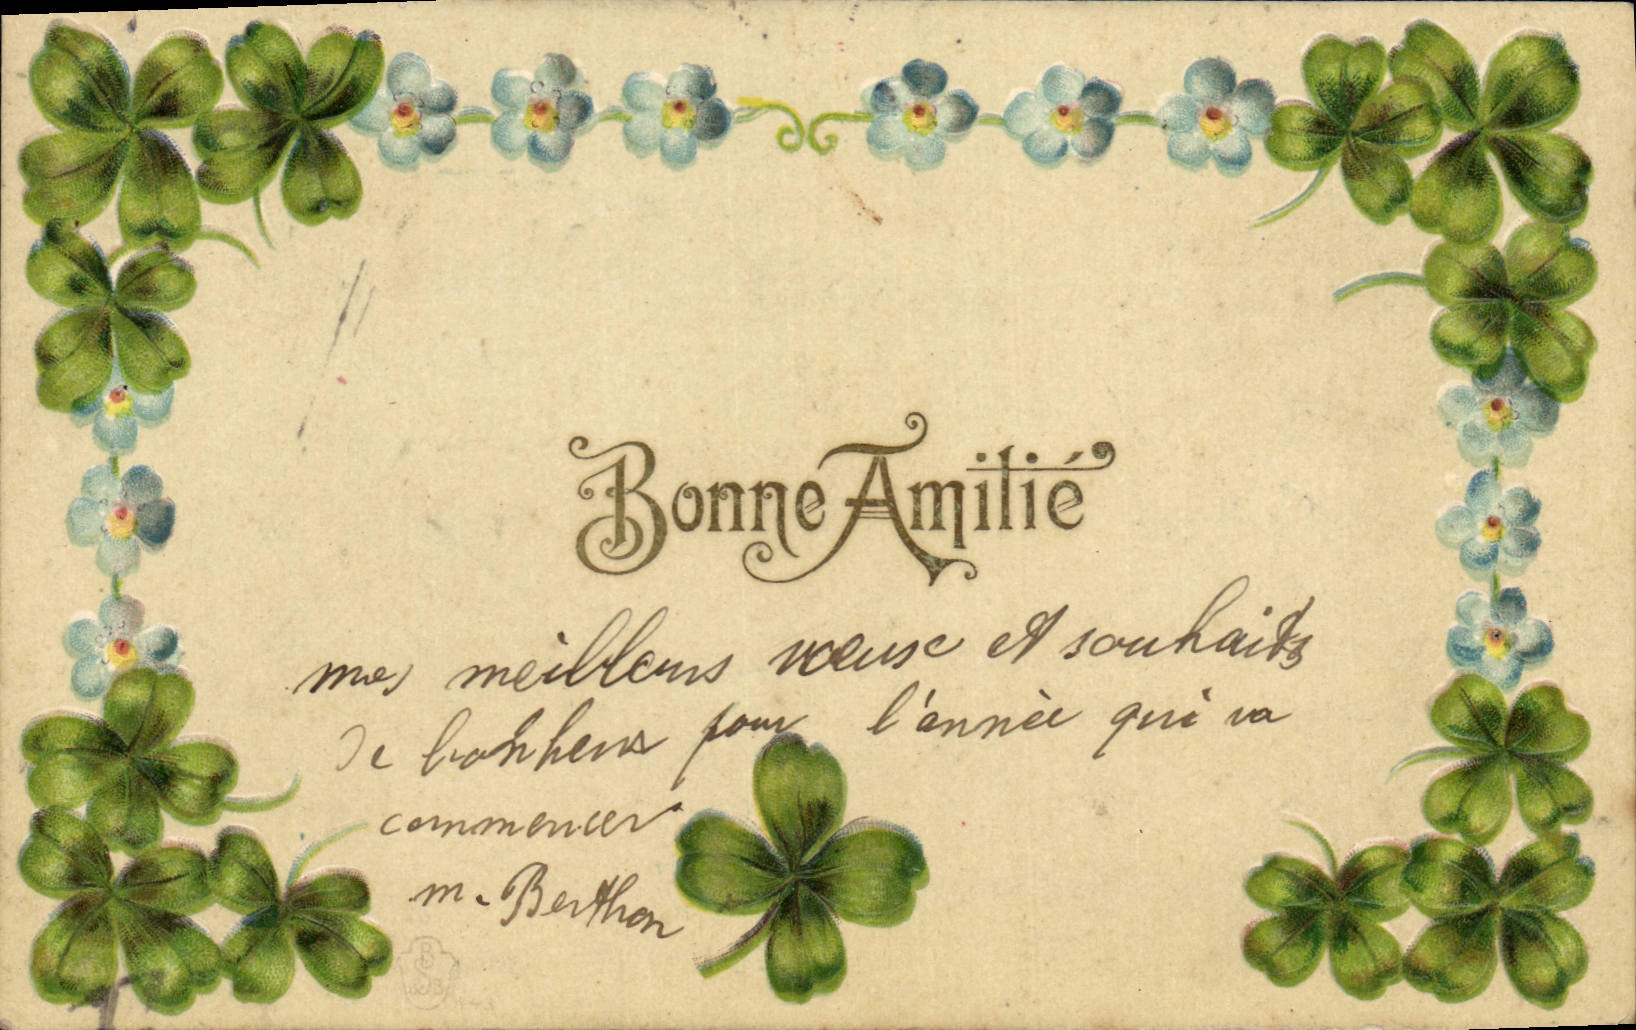 Bonne Amitié
mes meilleurs vœux et souhaits
de bonheur pour l'année qui va
commencer
m. Berthon